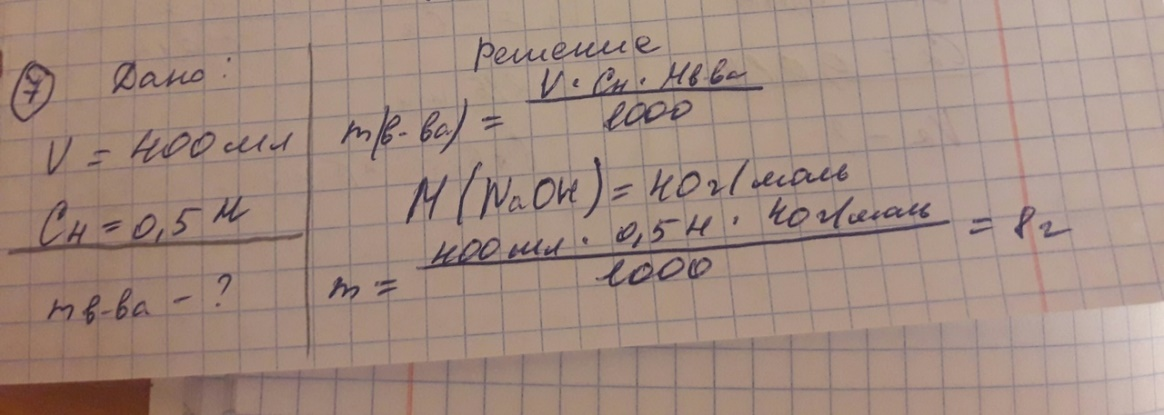 7 Дано:
V = 400 мл
Cн = 0,5 М
m в-ва - ?
Решение
m(в-ва) = V · Cн · M в-ва / 1000
M (NaOH) = 40 г/моль
m = 400 мл · 0,5 н · 40 г/моль / 1000 = 8 г